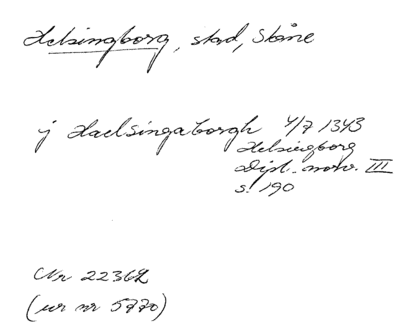 Helsingborg, stad, Skåne
j Haelsingaborgh 4/7 1343
Helsingborg
Dipl. norv. III
s. 190
Nr 22362
(ur nr 5770)